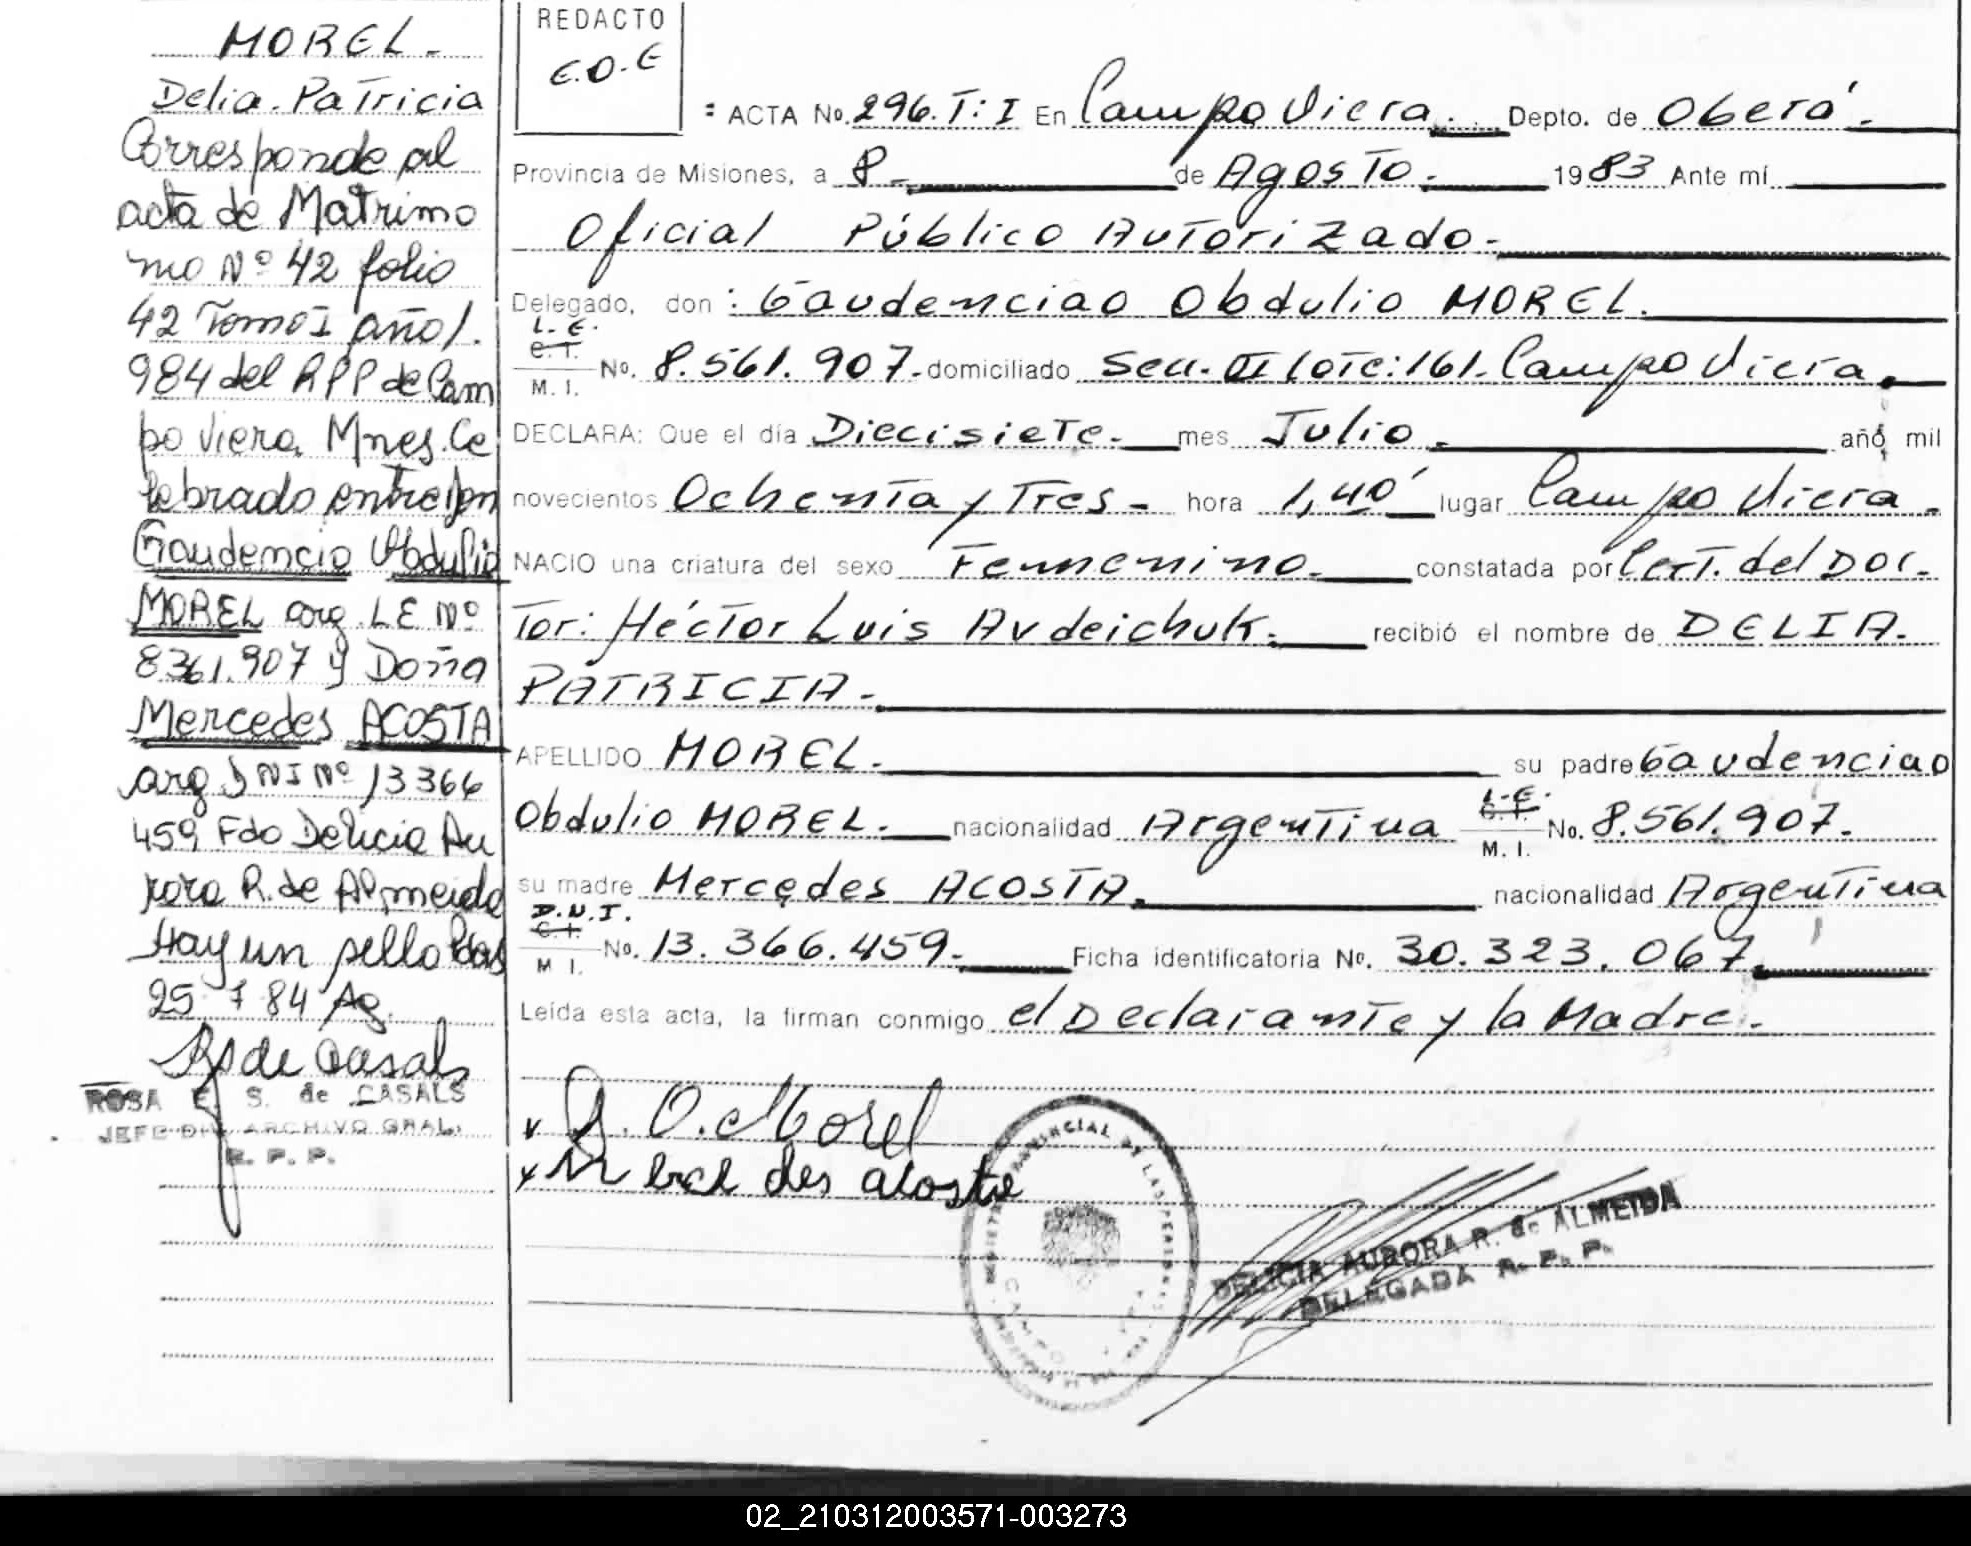 MOREL.-
Delia. Patricia
Corresponde al
acta de Matrimo
nio Nº 42 folio
42 Tomo I año 1.
984 del RPP de Cam
po Viera, Mnes. Ce
lebrado entre Don
Gaudencio Obdulio
MOREL arg. LE Nº
8361.907 y Doña
Mercedes ACOSTA
arg DNI Nº 13 366
459 Fdo Delicia Au
rora R. de Almeida
Hay un sello Pdas
25 7 84 Ag.
RS de Casals
ROSA E. S. de CASALS
JEFE DIV. ARCHIVO GRAL.
R. P. P.
REDACTO
E.D.E
: ACTA No. 296. T: I En Campo Viera. Depto. de Oberá.-
Provincia de Misiones, a 8- de Agosto.- 1983 Ante mí
Oficial Público Autorizado.-
Delegado, don : Gaudenciao Obdulio MOREL.
L. E.
C. I.
M. I. No. 8.561.907.- domiciliado Secc. III Lote: 161. Campo Viera.
DECLARA: Que el día Diecisiete.- mes Julio.- año mil
novecientos Ochenta y Tres - hora 1,40' lugar Campo Viera.-
NACIO una criatura del sexo Femenino.- constatada por Cert. del Doc.
Tor: Héctor Luis Avdeichuk.- recibió el nombre de DELIA.
PATRICIA.-
APELLIDO MOREL.- su padre Gaudenciao
Obdulio MOREL.- nacionalidad Argentina L.E. C. I. M. I. No. 8.561.907.
su madre Mercedes ACOSTA.- nacionalidad Argentina
D.N.I.
C. I.
M I. No. 13.366.459.- Ficha identificatoria No. 30.323.067.
Leída esta acta, la firman conmigo el Declarante y la Madre.-
G. O. Morel
Mercedes acosta
REGISTRO PROVINCIAL DE LAS PERSONAS
CAMPO
DELICIA AURORA R. de ALMEIDA
DELEGADA R. P. P.
02_210312003571-003273